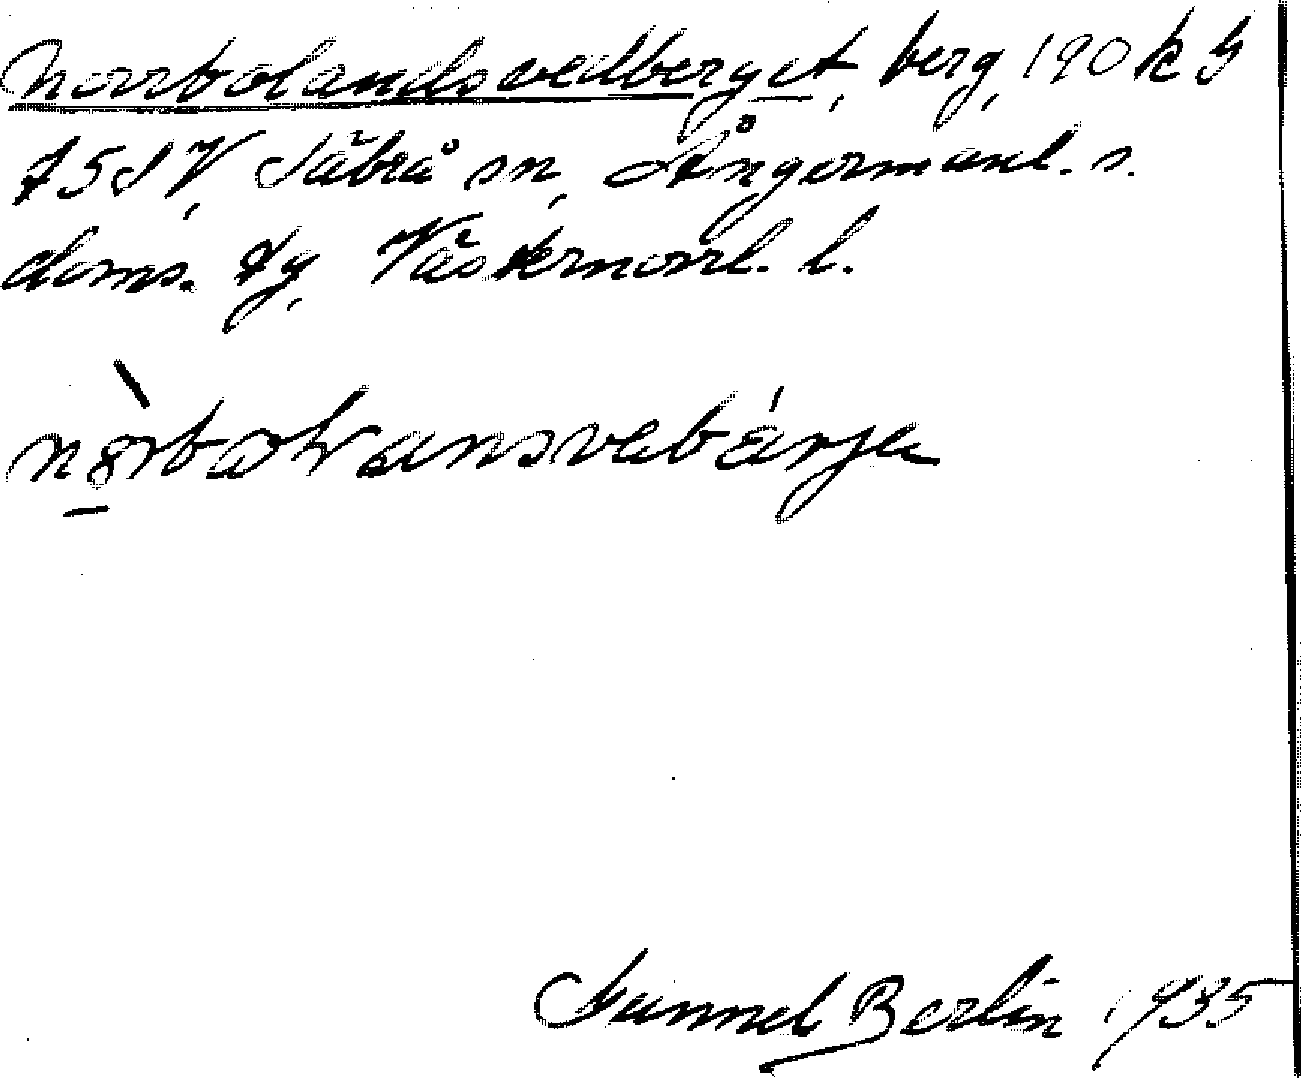 Norrbolandsvedberget, berg, 190 k G
75 S V, Säbrå sn, Ångermanl. s.
doms. tg, Västernorrl. l.
nòrbolansvebárja
Gunnel Berlin 1935